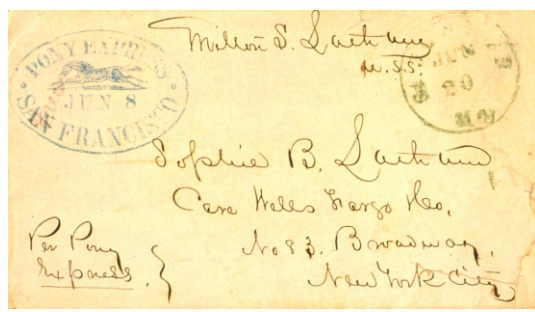 PONY EXPRESS
JUN 8
SAN FRANCISCO
Milton S. Latham
U.S.S.
JUN
20
MO
Sophie B. Latham
Care Wells Fargo &Co,
No 83. Broadway,
New York City
Per Pony
Express.